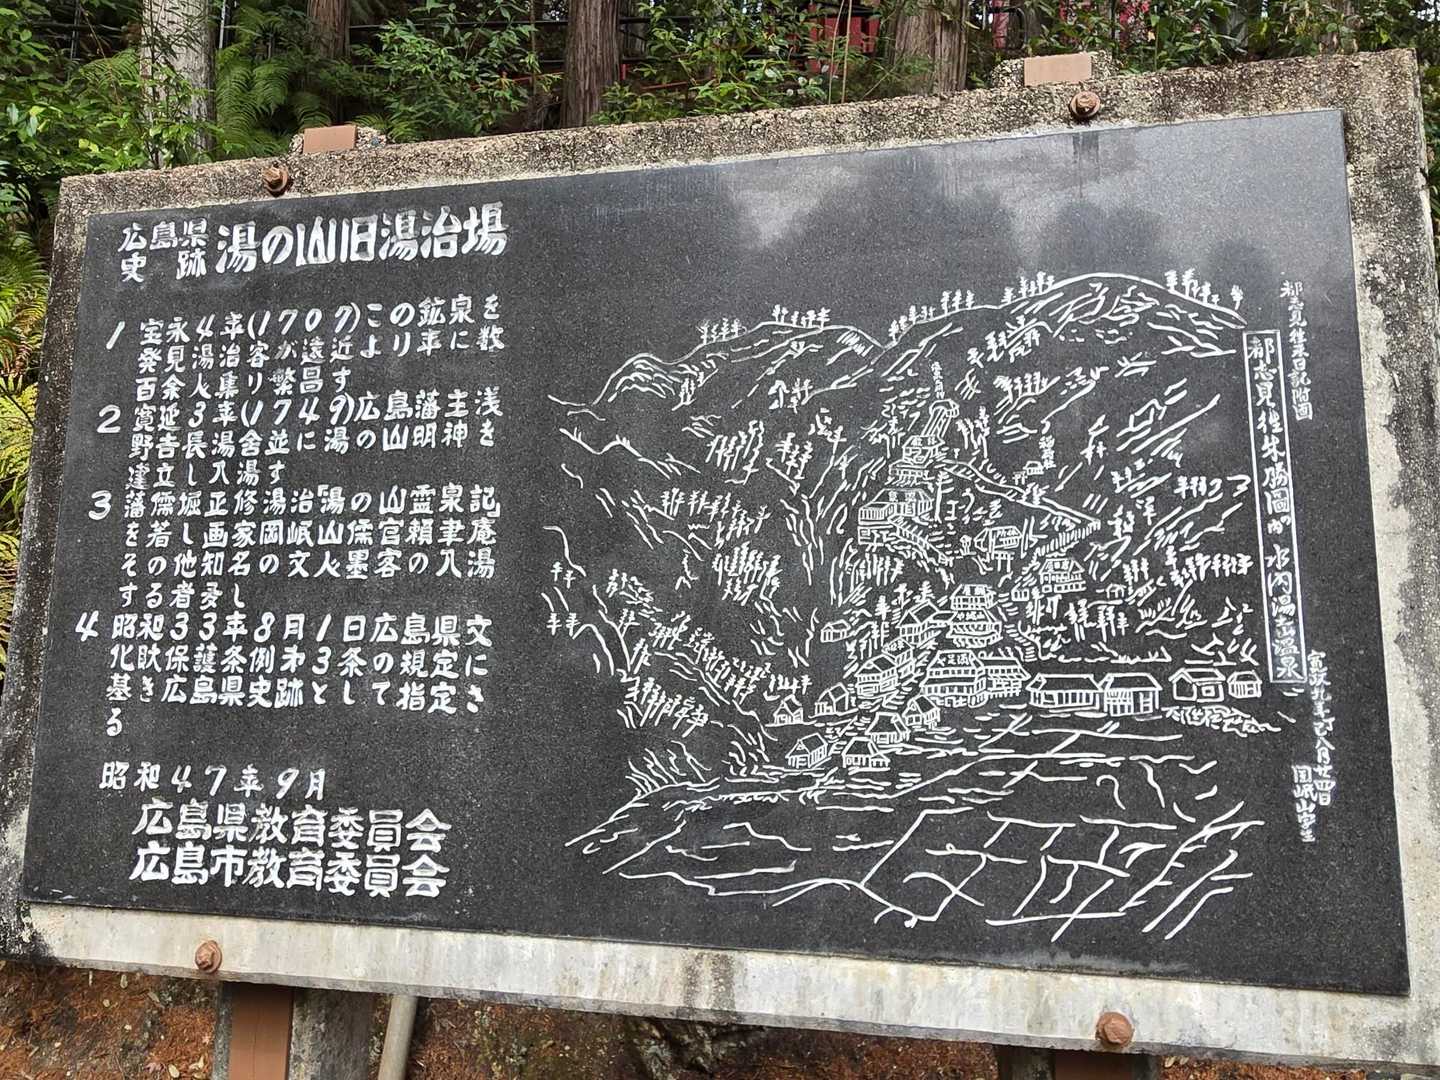 広島県
史跡
湯の山旧湯治場
1 宝永4年(1707)この鉱泉を
発見湯治客が遠近より年に数
百余人集り繁昌す
2 寛延3年(1749)広島藩主浅
野吉長湯舎並に湯の山明神を
建立し入湯す
3 藩儒堀正修湯治「湯の山霊泉記」
を若し画家岡岷山儒官頼聿庵
その他知名の文人墨客の入湯
する者多し
4 昭和33年8月1日広島県文
化財保護条例第13条の規定に
基き広島県史跡として指定さ
る
昭和47年9月
広島県教育委員会
広島市教育委員会
都志見往来日記附図
都志見往来勝図の内 水内湯山温泉
寛政九年丁巳八月廿四日
国岷山写生